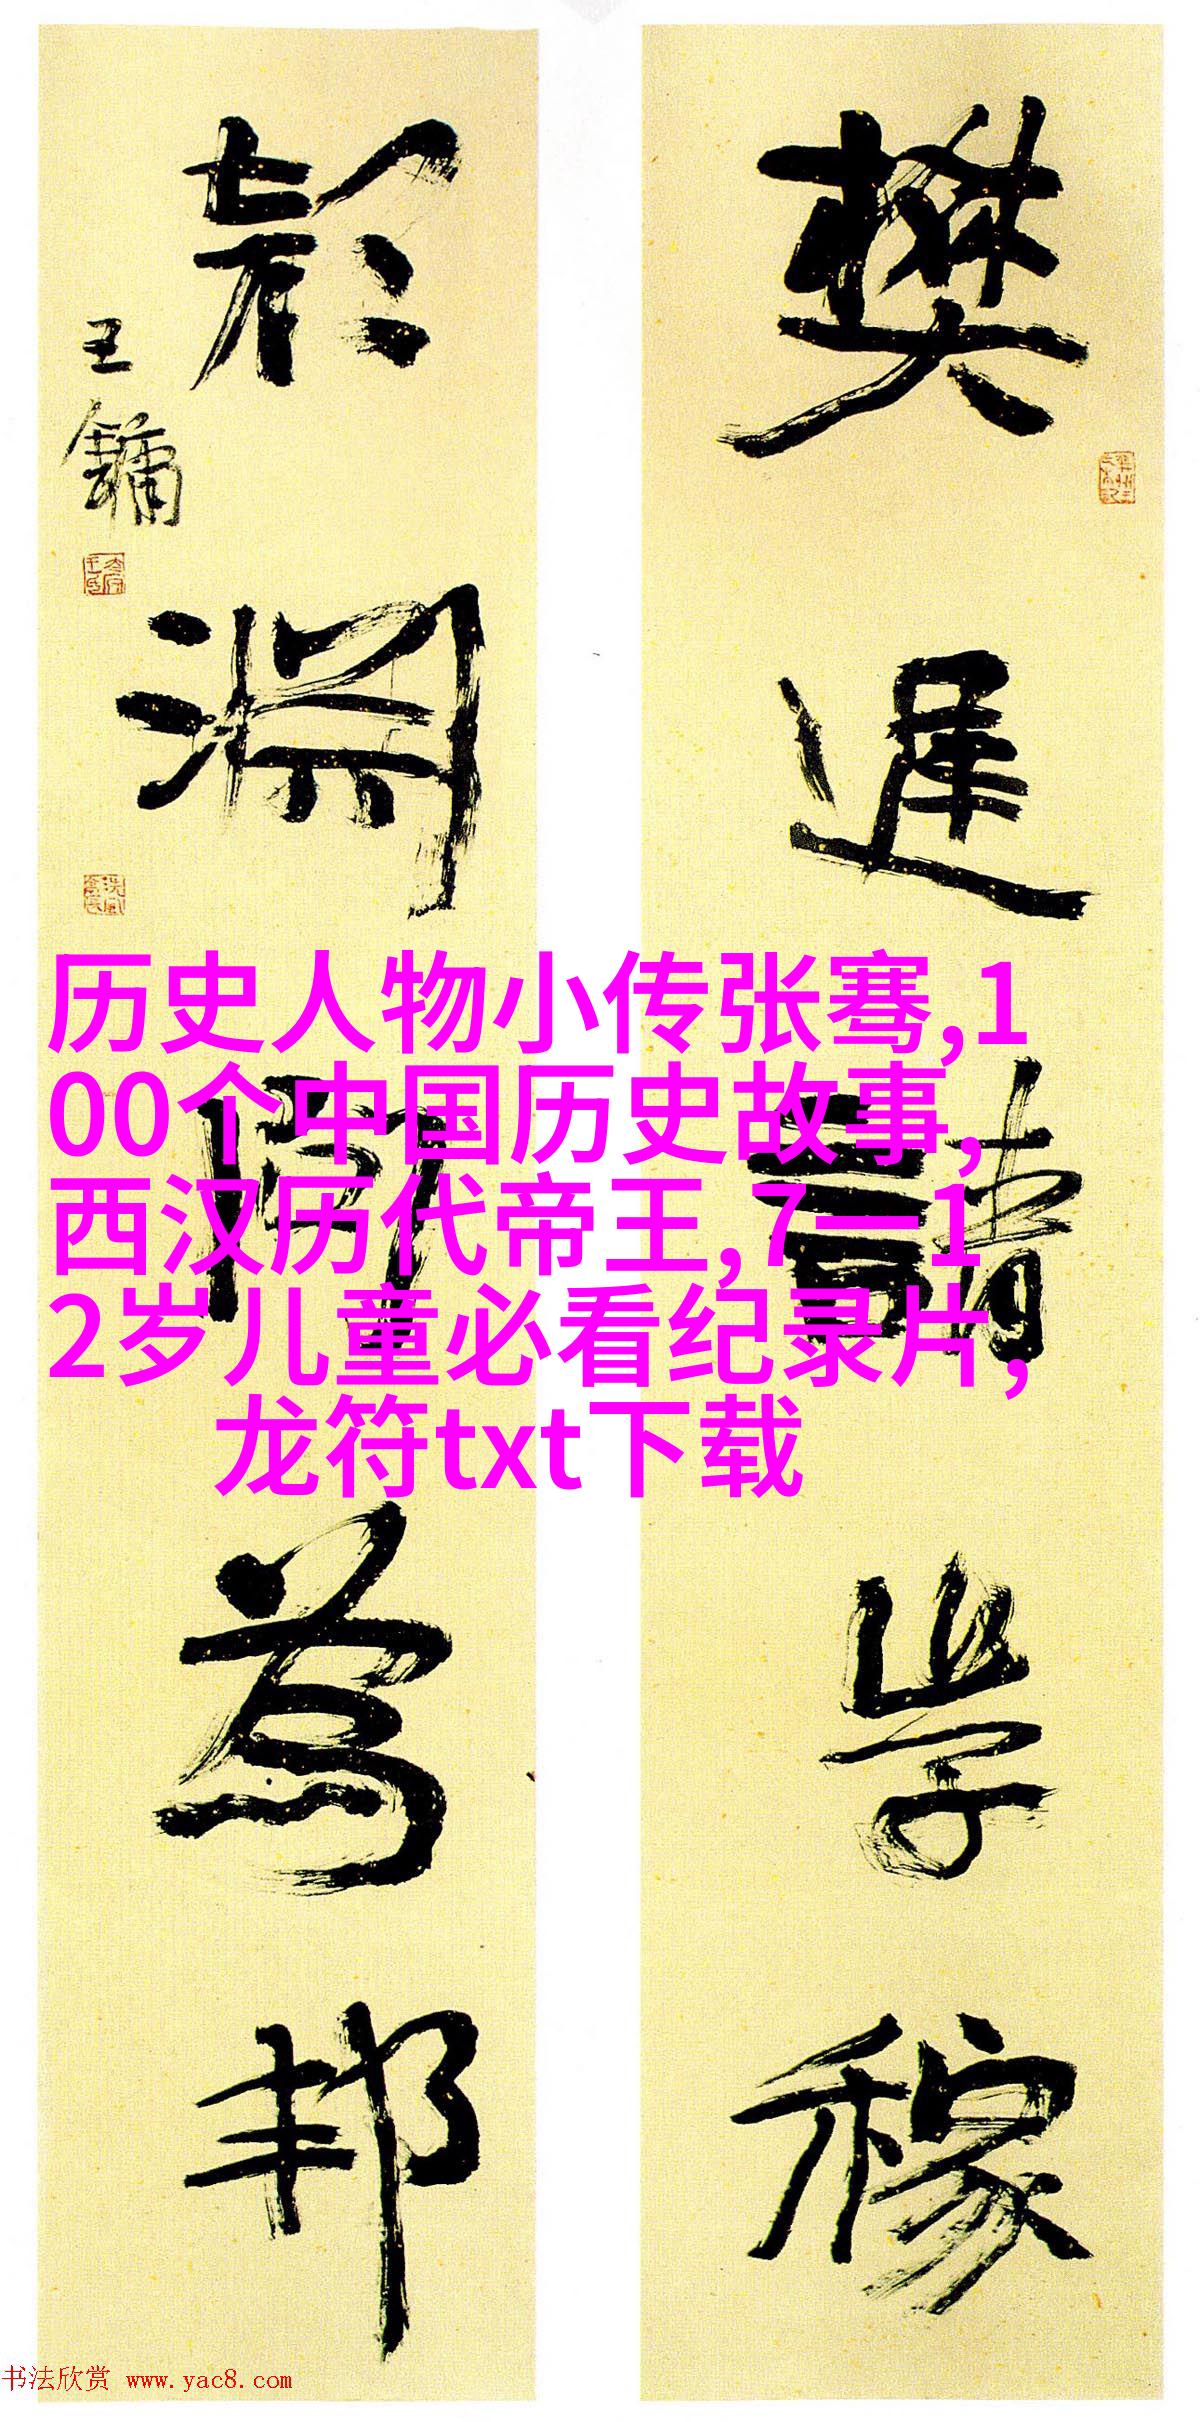 樊遲請學稼
顏淵問為邦
王鏞
历史人物小传张骞,1
00个中国历史故事,
西汉历代帝王,7一1
2岁儿童必看纪录片,
龙符txt下载
书法欣赏 www.yac8.com